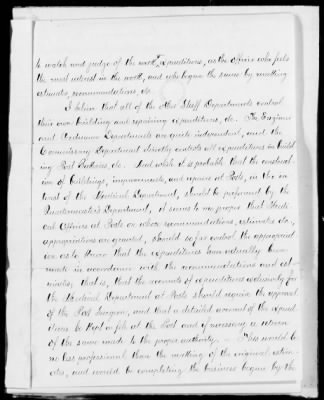 to watch and judge of the work & expenditures, as the officer who feels
the most interest in the work, and who began the same by making
estimates, recommendations, etc.
I believe that all of the other Staff Departments control
their own building and repairing expenditures, etc. The Engineer
and Ordnance Departments are quite independent, and the
Commissary Department directly controls all expenditures in build-
ing Post Bakeries, etc. And while it is probable that the construct-
ion of buildings, improvements, and repairs at Posts, in the in-
terest of the Medical Department, should be performed by the
Quartermaster's Department, it seems to me proper that Medi-
cal Officers at Posts on whose recommendations, estimates etc.,
appropriations are granted, should so far control the appropriat-
ion as to know that the expenditures have actually been
made in accordance with the recommendations and est-
imates; that is, that the accounts of expenditures exclusively for
the Medical Department at Posts should require the approval
of the Post Surgeon, and that a detailed account of the expend-
itures be kept on file at the Post and if necessary a return
of the same made to the proper authority. This would be
no less professional than the making of the original estim-
ates, and would be completing the business begun by the